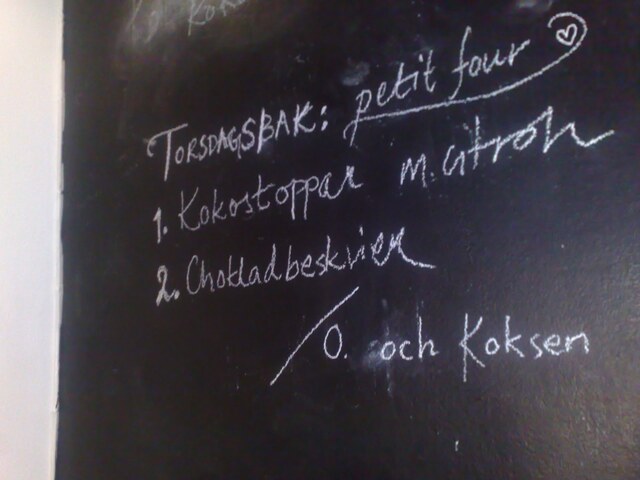 TORSDAGSBAK: petit four
1. Kokostoppar m. citron
2. Chokladbeskvier
/O. och Koksen